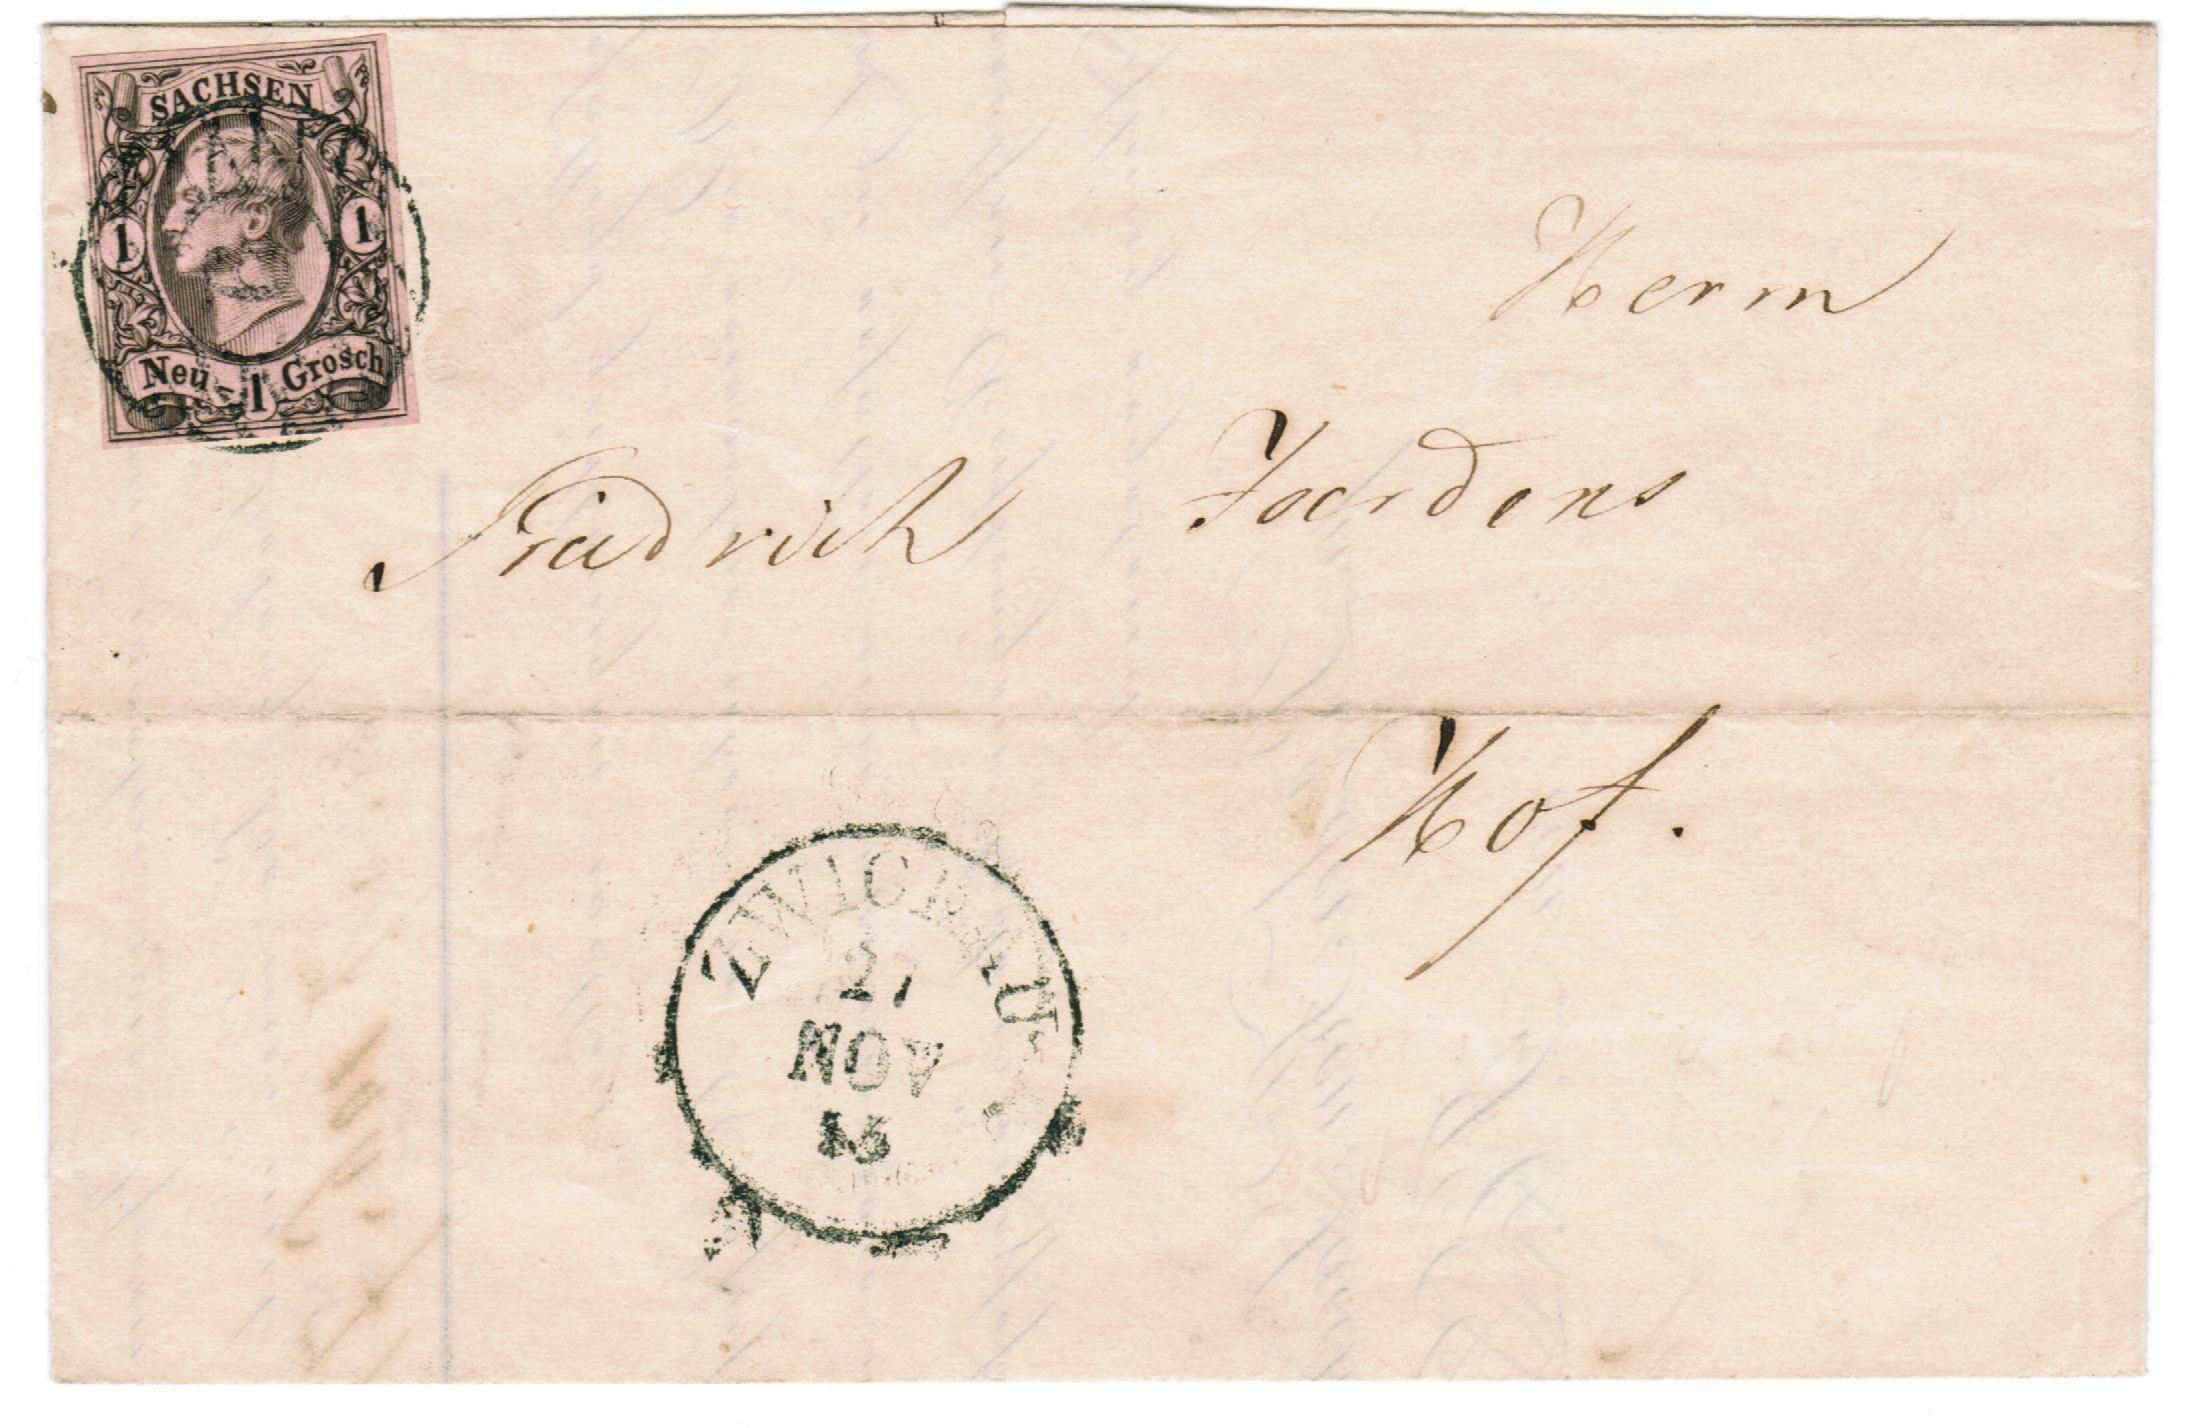 SACHSEN
1 1
Neu- 1 Grosch
Herrn
Friedrich Joerdens
Hof.
ZWICKAU
27
NOV